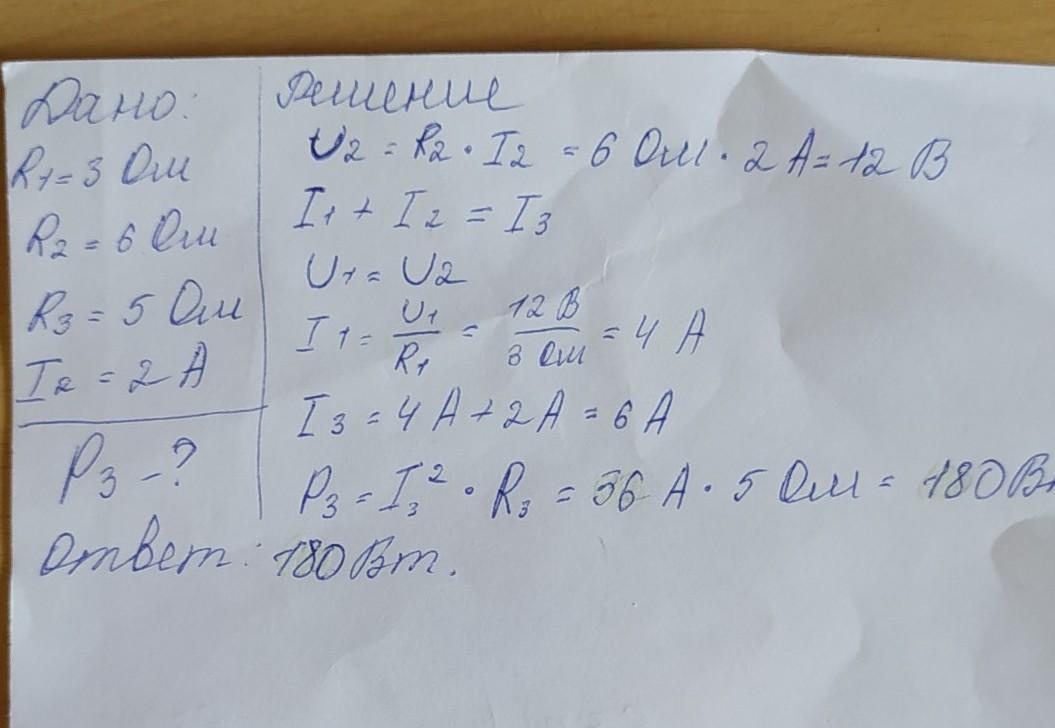 Дано:
R1=3 Ом
R2=6 Ом
R3=5 Ом
I2=2 А
P3-?
Решение
U2=R2·I2=6 Ом·2 А=12 В
I1+I2=I3
U1=U2
I1=U1/R1=12 В/3 Ом=4 А
I3=4 А+2 А=6 А
P3=I3²·R3=36 А·5 Ом=180 В
Ответ: 180 Вт.